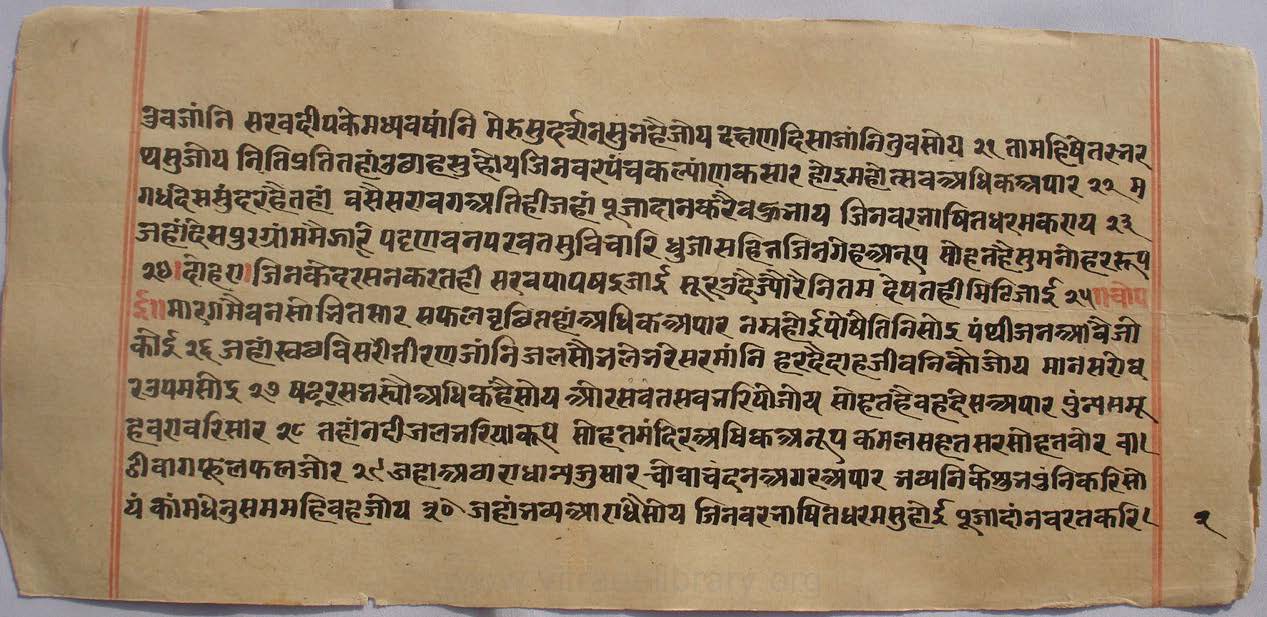 ध्रुवजांनि सरवदीपकेमध्यवषांनि मेरुसुदर्शनसुभहैजोय दक्षणदिसाजांनितुवसोय २१ तामहिषेतरुभर
थसुजोय नितिप्रतितहांउछाहसुहोयजिनवरपंचकल्यांणकसार होइमहोत्सवअधिकअपार २२ म
गधदेससुंदरहैतहां वसैसरावगअतिहीजहां पूजादानकरैवहुभाय जिनवरभाषितधरमकराय २३
जहांदेसपुरग्रांममैझारि पट्टणवनपरवतसुविचारि धुजासहितजिनगेहअनूप सोहतहैसुमनोहररूप
२४॥दोहरा॥जिनकेदरसनकरतही सरवपापषइजाई सूरउदैज्यौरैनितम देषतहीमिटिजाई २५॥चौप
ई॥मारगमैवनसोभितसार सफलवृछितहांअधिकअपार नम्रहोईपोषैतिनिसोइ पंथीजनआवैजो
कोई २६ जहांस्वछविसरोनीरणजांनि जलसौभलेभरेसरमांनि हरदैदाहजीवनिकौजोय मानसरोव
रउपमसोइ २७ षटरसभस्यौअधिकहैसोय औरसवेतसवभरियोजोय सोहतहैवहदेसअपार पुंन्यसमू
हवरावरिसार २८ तहांनदीजलभरियाकूप सोहतमंदिरअधिकअनूप कमलसहतसरसोहतवोर वा।
डीवागफूलफलजोर २९ जहाअठाराधान्यजुसार चोवाचंदनअगरअपार भव्यनिकेशुभपुंनिकरिसो
यं कांमधेनुसममहिवहजोय ३० जहांभव्यआराधैसोय जिनवरभाषितधरमसुहोई पूजादांनवरतकरि।
२
www.vitragelibrary.org